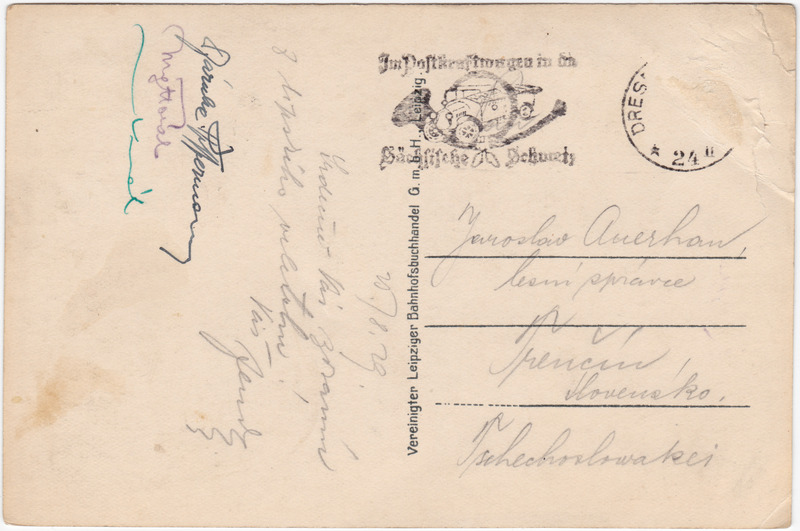 Im Postkraftwagen in die
Sächsische Schweiz
DRES
* 24 II
Vereinigter Leipziger Bahnhofsbuchhandel G.m.b.H. Leipzig.
Jaroslav Auerhan,
lesní správce
Trenčín,
Slovensko.
Tschechoslowakei
20./8.29
Srdečně Vás zdravím
z lipského veletrhu!
Váš